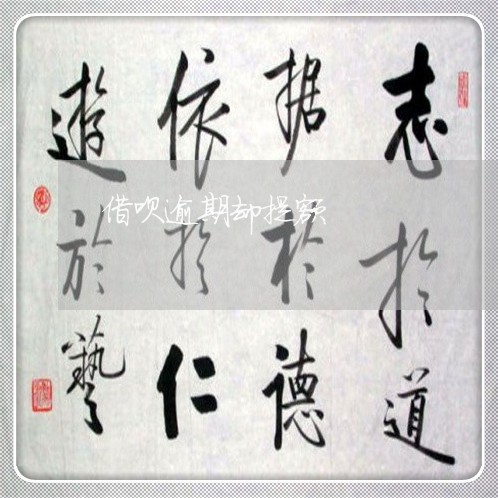 志於道
据於德
依於仁
遊於藝
借吹逾期却提额